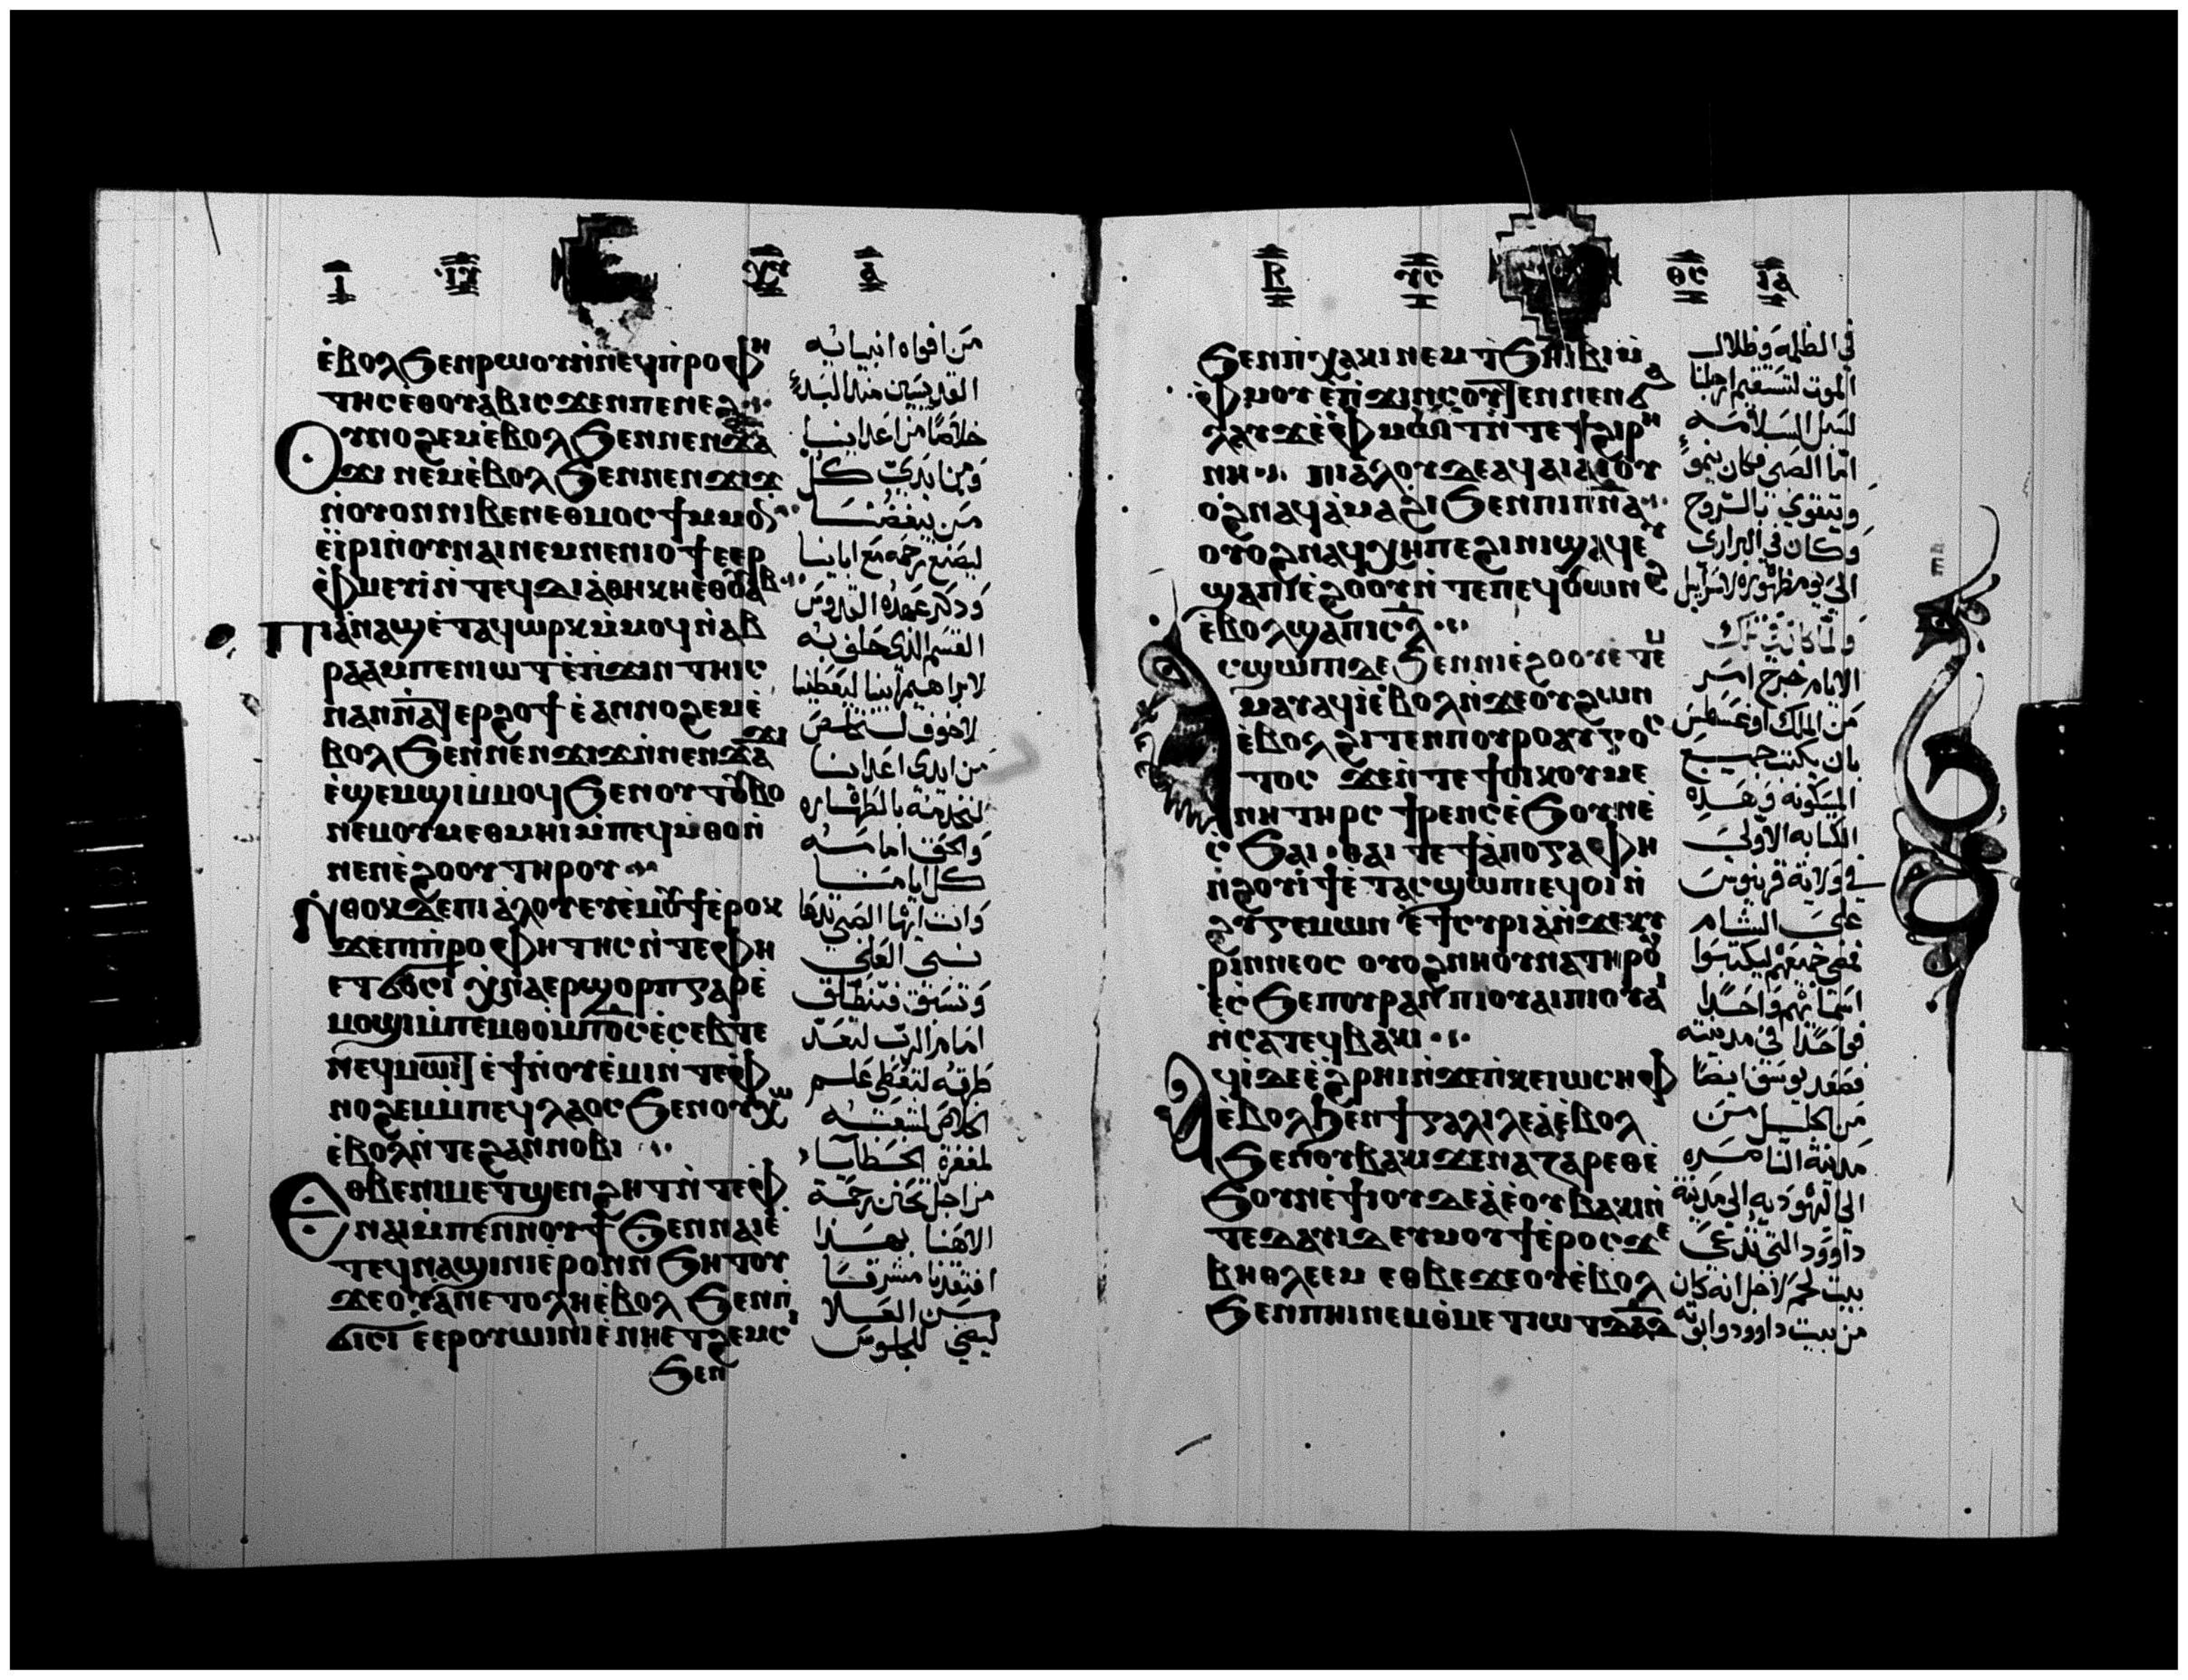 ⲉ̀ⲃⲟⲗϧⲉⲛⲣⲱⲟⲩⲛ̀ⲛⲉϥⲡ̀ⲣⲟⲫⲏ
ⲧⲏⲥⲉ̀ⲑⲟⲩⲁⲃⲓⲥϫⲉⲛⲡⲉⲛⲉϩ
ⲟⲩⲛⲟϩⲉⲙⲉ̀ⲃⲟⲗϧⲉⲛⲛⲉⲛϫⲁ
ϫⲓ ⲛⲉⲙⲉ̀ⲃⲟⲗϧⲉⲛⲛⲉⲛϫⲓϫ
ⲛ̀ⲟⲩⲟⲛⲛⲓⲃⲉⲛⲉⲑⲙⲟⲥϯⲙⲙⲟⲛ
ⲉ̀ⲓ̀ⲣⲓⲛ̀ⲟⲩⲛⲁⲓⲛⲉⲙⲛⲉⲛⲓⲟϯⲉⲉⲣ
ⲫⲙⲉⲩⲓ̀ⲛ̀ⲧⲉϥⲇⲓⲁ̀ⲑⲏⲕⲏⲉⲑⲟⲩⲁⲃ
ⲡⲓⲁ̀ⲛⲁϣⲉ̀ⲧⲁϥⲱⲣⲕⲙ̀ⲙⲟϥⲛ̀ⲁⲃ
ⲣⲁⲁⲙⲡⲉⲛⲓⲱⲧⲉ̀ⲡ̀ϫⲓⲛⲧⲏⲓⲥ
ⲛⲁⲛⲛ̀ⲁϯⲉⲣϩⲟϯ ⲉ̀ⲁⲛⲛⲟϩⲉⲙⲉ̀
ⲃⲟⲗϧⲉⲛⲛⲉⲛϫⲓϫⲛ̀ⲛⲉⲛϫⲁϫⲓ
ⲉ̀ϣⲉⲙϣⲓⲙ̀ⲙⲟϥϧⲉⲛⲟⲩⲧⲟⲩⲃⲟ
ⲛⲉⲙⲟⲩⲙⲉⲑⲙⲏⲓⲙ̀ⲡⲉϥⲙ̀ⲑⲟⲛ̀
ⲛⲉⲛⲉ̀ϩⲟⲟⲩ ⲧⲏⲣⲟⲩ
ⲛ̀ⲑⲟⲕϫⲉⲡⲓⲁ̀ⲗⲟⲩⲉⲩⲉ̀ⲙⲟⲩϯⲉ̀ⲣⲟⲕ
ϫⲉⲡⲡ̀ⲣⲟⲫⲏⲧⲏⲥⲛ̀ⲧⲉⲫⲏ
ⲉⲧϭⲟⲥⲓ ⲭ̀ⲛⲁⲉⲣϣⲟⲣⲡⲅⲁⲣⲉ̀
ⲙⲟϣⲓⲙ̀ⲡⲉⲙⲑⲟⲙ̀ⲡⲟ̅ⲥ̅ⲉ̀ⲥⲉⲃⲧⲉ
ⲛⲉϥⲙⲱⲓⲧ ⲉ̀ϯⲛ̀ⲟⲩⲉ̀ⲙⲓⲛ̀ⲧⲉⲫ
ⲛⲟϩⲉⲙⲙ̀ⲡⲉϥⲗⲁⲟⲥ ϧⲉⲛⲟⲩⲭⲱ
ⲉ̀ⲃⲟⲗⲛ̀ⲧⲉϩⲁⲛⲛⲟⲃⲓ
ⲉⲑⲃⲉⲛⲓⲙⲉⲧϣⲉⲛϩⲏⲧⲛ̀ⲧⲉⲫ
ⲛⲁⲓⲙ̀ⲡⲉⲛⲛⲟⲩϯ ϧⲉⲛⲛⲁⲓⲉ̀
ⲧⲉϥⲛⲁϣⲓⲛⲓⲉ̀ⲣⲟⲛⲛ̀ϧⲏⲧⲟⲩ
ϫⲉⲟⲩⲁⲛⲉⲧⲟⲗⲏⲉ̀ⲃⲟⲗ ϧⲉⲛⲡ
ϭⲓⲥⲓ ⲉⲉⲣⲟⲩⲱⲓⲛⲓⲉ̀ⲛⲏⲉⲧϩⲉⲙⲥⲓ
ϧⲉⲛ
من افواه انبيائه
القديسين منذ البدء
خلاصا من اعداينا
ومن ايدي كل
من يبغضنا
ليصنع رحمة مع اباينا
وذكر عهده القدوس
القسم الذي حلف به
لابراهيم ابينا ليعطينا
لاخوف لنخلص
من ايدي اعداينا
لنخدمه بالطهاره
والحق امامه
كل ايامنا
وانت ايها الصبي تدعا
نبي العلي
وتسبق فتنطلق
امام الرب لتعد
طرقه لتعطي علم
الخلاص لشعبه
لمغفرة الخطايا
من اجل تحنن رحمة
الاهنا بهذا
افتقدنا مشرقا
من العلا
ليضي للجلوس
ϧⲉⲛⲡ̀ⲭⲁⲕⲓ ⲛⲉⲙ ⲧ̀ϧⲏⲓⲃⲓⲙ̀
ⲫⲙⲟⲩ ⲉⲡ̀ϫⲓⲛⲥⲟⲩⲧⲉⲛⲛⲉⲛϭⲁ
ⲗⲁⲩϫⲉ̀ⲫⲙⲱⲓⲧⲛ̀ⲧⲉϯϩⲓⲣⲏ
ⲛⲏ ⲡⲓⲁ̀ⲗⲟⲩⲇⲉⲁϥⲁⲓⲁⲓⲟⲩ
ⲟϩⲛⲁϥⲁ̀ⲙⲁϩⲓ ϧⲉⲛⲡⲓⲡⲛ̅ⲁ̅
ⲟⲩⲟϩⲛⲁϥⲭⲏⲡⲉϩⲓⲛⲓϣⲁϥⲉⲩ
ϣⲁⲡⲓⲉ̀ϩⲟⲟⲩⲛ̀ⲧⲉⲡⲉϥⲟⲩⲱⲛϩ
ⲉ̀ⲃⲟⲗϣⲁⲡⲓⲥ̅ⲗ̅
ⲁⲥϣⲱⲡⲓⲇⲉϧⲉⲛⲛⲓⲉ̀ϩⲟⲟⲩⲉⲧⲉⲙ
ⲙⲁⲩⲁϥⲓⲉ̀ⲃⲟⲗⲛ̀ϫⲉⲟⲩϩⲱⲛ
ⲉ̀ⲃⲟⲗϩⲓⲧⲉⲛⲡⲟⲩⲣⲟⲁⲩⲅⲟⲥ
ⲧⲟⲥ ϫⲉⲛ̀ⲧⲉϯⲟⲓⲕⲟⲩⲙⲉ
ⲛⲏ ⲧⲏⲣⲥ ϯⲣⲉⲛⲥⲉ̀ϧⲟⲩⲛⲉ̀
ⲥ̀ϧⲁⲓ ⲑⲁⲓ ⲧⲉϯⲁ̀ⲡⲟⲅⲣⲁⲫⲏ
ⲛ̀ϩⲟⲩⲓϯⲉ̀ⲧⲁⲥϣⲱⲡⲓⲉϥⲟⲓⲛ̀
ϩⲩⲅⲉⲙⲱⲛ ⲉ̀ϯⲥⲩⲣⲓⲁ̀ⲛ̀ϫⲉⲕⲩ
ⲣⲓⲛⲛⲉⲟⲥ ⲟⲩⲟϩⲛⲏⲟⲩⲛⲁⲧⲏⲣⲟⲩ
ⲉ̀ⲥϧⲉⲡⲟⲩⲣⲁⲛⲡⲓⲟⲩⲁⲓⲡⲓⲟⲩⲁⲓ
ⲛ̀ⲥⲁⲧⲉϥⲃⲁⲕⲓ
ⲁϥⲓⲇⲉⲉ̀ϩⲣⲏⲓⲛ̀ϫⲉⲡ̀ⲕⲉⲓⲱⲥⲏⲫ
ⲉ̀ⲃⲟⲗϧⲉⲛϯⲅⲁⲗⲓⲗⲉⲁ̀ⲉ̀ⲃⲟⲗ
ϧⲉⲛⲟⲩⲃⲁⲕⲓϫⲉⲛⲁⲍⲁⲣⲉⲑⲉ̀
ϧⲟⲩⲛⲉ̀ϯⲓⲟⲩⲇⲉⲁ̀ⲉⲟⲩⲃⲁⲕⲓⲛ̀
ⲧⲉⲇⲁⲩⲓⲇⲉⲩⲙⲟⲩϯⲉ̀ⲣⲟⲥϫⲉ
ⲃⲏⲑⲗⲉⲉⲙ ⲉⲑⲃⲉϫⲉⲟⲩⲉ̀ⲃⲟⲗ
ϧⲉⲛⲡⲏⲓⲛⲉⲙⲑⲙⲉⲧⲓⲱⲧⲇ̅ⲁ̅ⲇ̅
في الظلمه وظلال
الموت لتستقيم ارجلنا
لسبل السلامه
اما الصبي فكان ينمو
ويتقوي بالروح
وكان في البراري
الي يوم ظهوره لاسراييل
ولما كان في تلك
الايام خرج امر
من الملك اوغسطس
بان يكتب جميع
المسكونه وهذه
الكتابه الاولي
في ولاية قرينوس
علي الشام
فمضي جميعهم ليكتبوا
اسمايهم واحدا
فواحدا في مدينته
فصعد يوسف ايضا
من الجليل من
مدينة الناصره
الي اليهوديه الي مدينة
داوود التي تدعي
بيت لحم لاجل انه كان
من بيت داوود وابوته